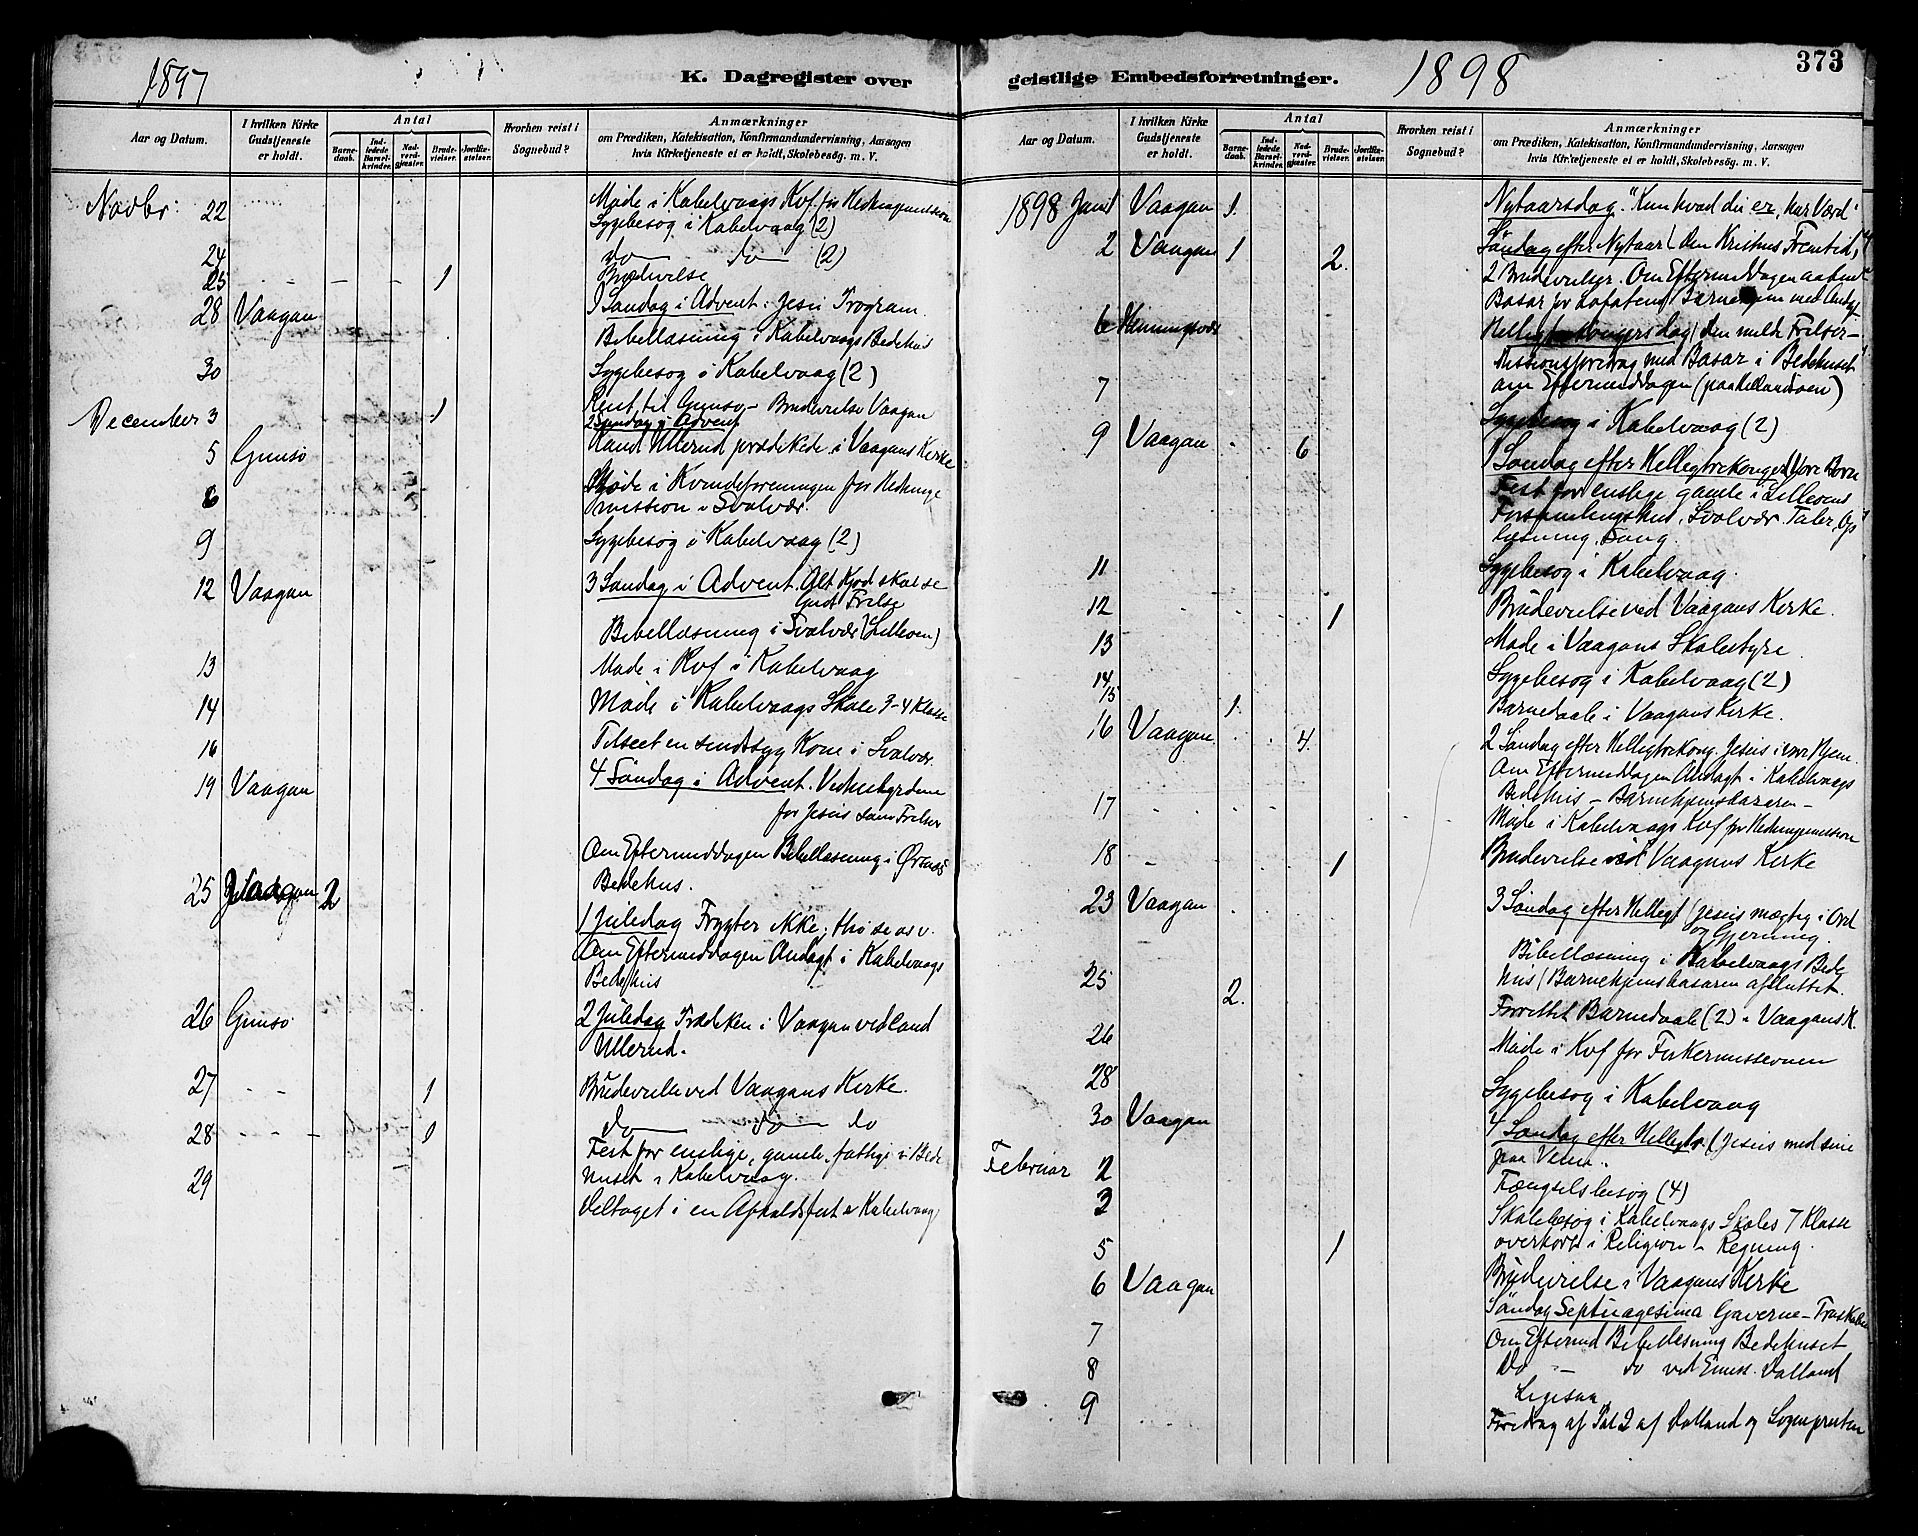 1897
K. Dagregister over
Aar og Datum.
I hvilken Kirke Gudstjeneste er holdt.
Antal
Barne-daab.
Ind-ledede Barsel-kvinder.
Nad-verd-gjæster.
Brude-vielser.
Jordfæ-stelser.
Hvorhen reist i Sognebud?
Anmærkninger
om Prædiken, Katekisation, Konfirmandundervisning, Aarsagen
hvis Kirketjeneste ei er holdt, Skolebesög. m. V.
Novbr: 22 Møde i Kabelvaags Kvf. for Hedningemission
Sygebesøg i Kabelvaag (2)
24 do do (2)
25 1 Brudevielse
28 Vaagan 1 Søndag i Advent. Jesu Program.
Bibellæsning i Kabelvaags Bedehus
30 Sygebesøg i Kabelvaag (2)
December 3 1 Reist til Gimsø – Brudevielse Vaagan
2 Søndag i Advent
5 Gimsø Kand Ullerud prædikede i Vaagans Kirke
6 Møde i Kvindeforeningen for Hedninge
mission i Svolvær.
9 Sygebesøg i Kabelvaag (2)
12 Vaagan 3 Søndag i Advent. Alt Kjød skal se
Guds Frelse
Bibellæsning i Svolvær (Lilleoen)
13 Møde i Kvf i Kabelvaag
14 Møde i Kabelvaags Skole 3-4 Klasse
16 Tilseet en sindssyg Kone i Svolvær.
19 Vaagan 4 Søndag i Advent. Vidnesbyrdene
for Jesus som Frelser
Om Eftermiddagen Bibellæsning i Ørsnes
Bedehus.
25 Vaagan 2
1 Juledag Frygter ikke, thi se o s v.
Om Eftermiddagen Andagt i Kabelvaags
Bedehus
26 Gimsø 2 Juledag Prædiken i Vaagan ved Cand
Ullerud.
27 1 Brudevielse ved Vaagans Kirke.
28 1 do do do
Fest for enslige, gamle, fattige i Bede
29 huset i Kabelvaag.
Deltaget i en Afholdsfest i Kabelvaag
geistlige Embedsforretninger.
1898
373
Aar og Datum.
I hvilken Kirke Gudstjeneste er holdt.
Antal
Barne-daab.
Ind-ledede Barsel-kvinder.
Nad-verd-gjæster.
Brude-vielser.
Jordfæ-stelser.
Hvorhen reist i Sognebud?
Anmærkninger
om Prædiken, Katekisation, Konfirmandundervisning, Aarsagen
hvis Kirketjeneste ei er holdt, Skolebesög, m. V.
1898 Jan 1 Vaagan 1. Nytaarsdag. "Kun hvad du er, har Værd"
2 Vaagan 1 2. Søndag efter Nytaar (Om Kristus Fremtid,
2 Brudevielser. Om Eftermiddagen aabnet
Basar for Lofotens Barnehjem med Andagt
6 Henningsvær Helligtrekongersdag (den milde Frelser –
Missionsforedrag med Basar i Bedehuset
7 om Eftermiddagen
Sygebesøg i Kabelvaag (2)
9 Vaagan 6 1 Søndag efter Helligtrekonger (Vore Børn
Fest for enslige gamle i Lilleoens
Forsamlingshus, Svolvær. Taler, Op
læsning, Sang.
11 Sygebesøg i Kabelvaag.
12 1 Brudevielse ved Vaagans Kirke.
13 Møde i Vaagans Skolestyre
14 Sygebesøg i Kabelvaag (2)
15 1. Barnedaab i Vaagans Kirke.
16 Vaagan 4 2 Søndag efter Helligtrekong. Jesus i vore Hjem.
Om Eftermiddagen Andagt i Kabelvaags
Bedehus – Barnehjemsbazaren –
17 Møde i Kabelvaags Kvf for Hedningemission
18 1 Brudevielse ved Vaagans Kirke
23 Vaagan 3 Søndag efter Helligt (Jesus mægtig i Ord
og Gjerning.
Bibellæsning i Kabelvaags Bede
25 hus (Barnehjemsbasaren afsluttet.
2. Forrettet Barnedaab (2) i Vaagans K.
26 Møde i Kvf for Finkemissionen
28 Sygebesøg i Kabelvaag
30 Vaagan 4 Søndag efter Helligtr. (Jesus med sine
paa Veien.
Februar 2 Fængselsbesøg (4)
3 Skolebesøg i Kabelvaags Skoles 7 Klasse
overhørt i Religion – Regning.
5 1 Brudevielse i Vaagans Kirke
6 Vaagan Søndag Septuagesima Gaverne – Troskaben
7 Om Efterm Bibellæsning Bedehuset
8 Do – do ved Emiss. Dalland
9 Ligesaa
Foredrag af Dalland og Sognepresten